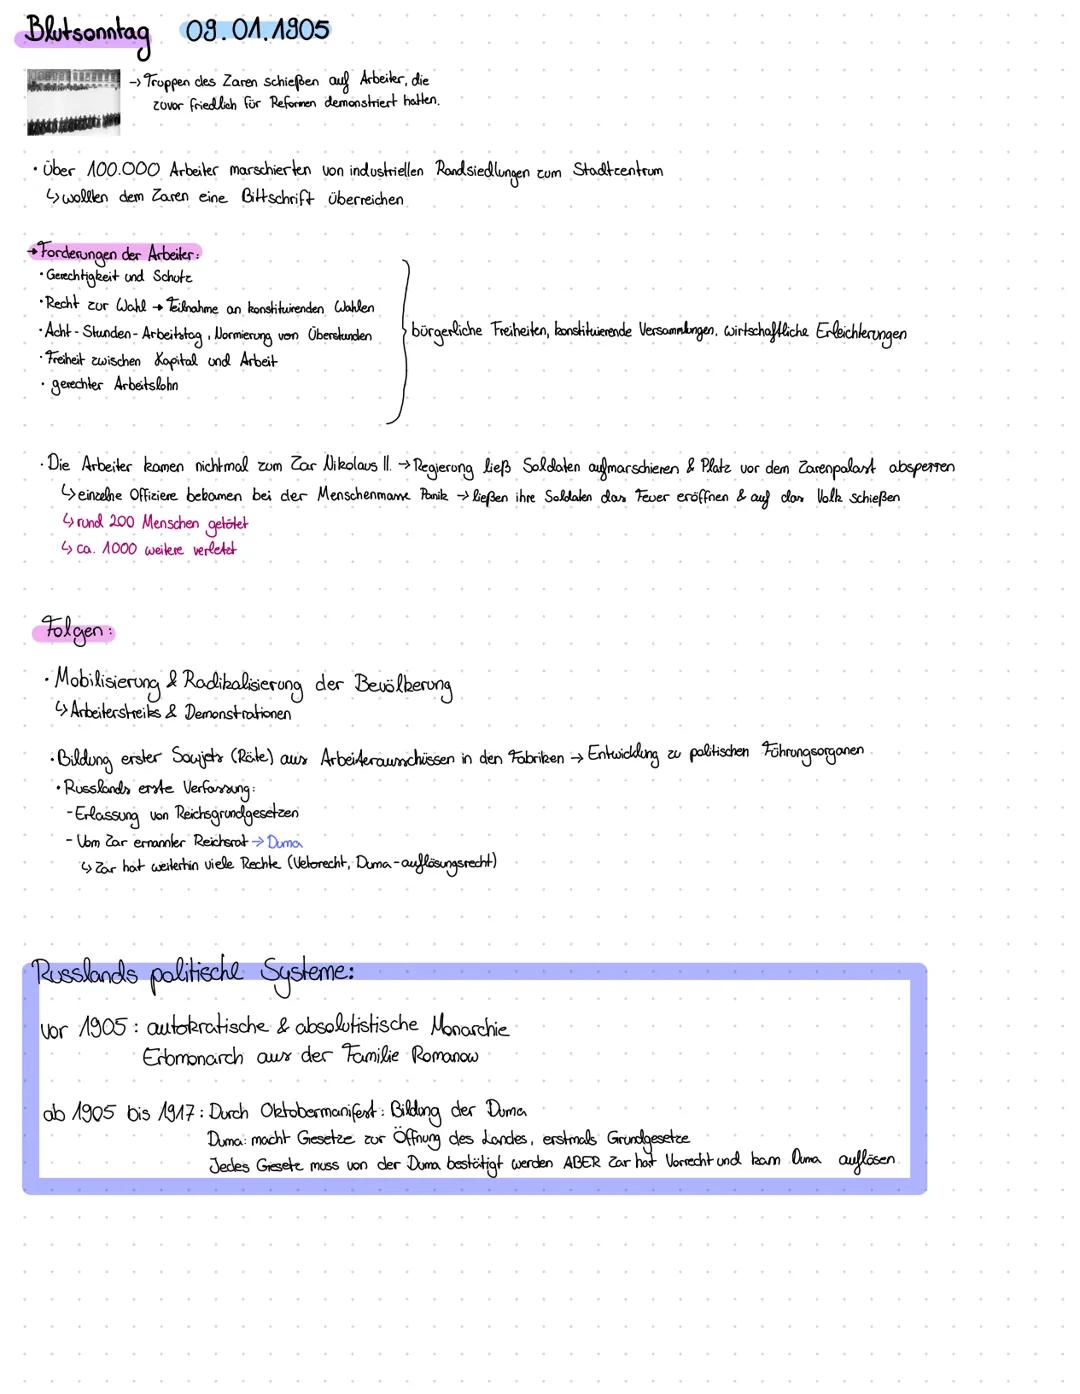 Blutsonntag 09.01.1905
→ Truppen des Zaren schießen auf Arbeiter, die
zuvor friedlich für Reformen demonstriert hatten.
· über 100.000 Arbeiter marschierten von industriellen Randsiedlungen zum Stadtzentrum
↳ wollten dem Zaren eine Bittschrift überreichen
→ Forderungen der Arbeiter:
· Gerechtigkeit und Schutz
· Recht zur Wahl → Teilnahme an konstituirenden Wahlen
· Acht-Stunden-Arbeitstag, Normierung von Überstunden
bürgerliche Freiheiten, konstituierende Versammlungen, wirtschaftliche Erleichterungen
· Freiheit zwischen Kapital und Arbeit
· gerechter Arbeitslohn
· Die Arbeiter kamen nichtmal zum Zar Nikolaus II. → Regierung ließ Soldaten aufmarschieren & Platz vor dem Zarenpalast absperren
↳ einzelne Offiziere bekamen bei der Menschenmasse Panik → ließen ihre Soldaten das Feuer eröffnen & auf das Volk schießen
↳ rund 200 Menschen getötet
↳ ca. 1000 weitere verletzt
Folgen:
· Mobilisierung & Radikalisierung der Bevölkerung
↳ Arbeiterstreiks & Demonstrationen
· Bildung erster Sowjets (Räte) aus Arbeiterausschüssen in den Fabriken → Entwicklung zu politischen Führungsorganen
· Russlands erste Verfassung:
- Erlassung von Reichsgrundgesetzen
- Vom Zar ernannter Reichsrat → Duma
↳ Zar hat weiterhin viele Rechte (Vetorecht, Duma-auflösungsrecht)
Russlands politische Systeme:
vor 1905: autokratische & absolutistische Monarchie
Erbmonarch aus der Familie Romanow
ab 1905 bis 1917: Durch Oktobermanifest: Bildung der Duma
Duma: macht Gesetze zur Öffnung des Landes, erstmals Grundgesetze
Jedes Gesetz muss von der Duma bestätigt werden ABER Zar hat Vorrecht und kann Duma auflösen